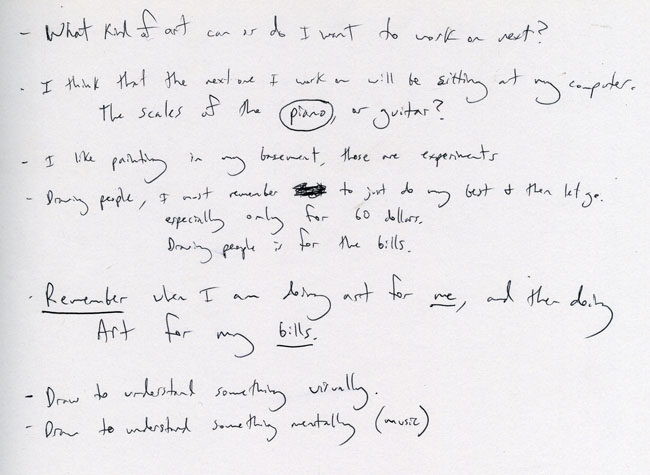 - What kind of art can or do I want to work on next?
- I think that the next one I work on will be sitting at my computer.
The scales of the piano, or guitar?
- I like painting in my basement, those are experiments
- Drawing people, I must remember to just do my best & then let go.
especially only for 60 dollars.
Drawing people is for the bills.
- Remember when I am doing art for me, and then doing
Art for my bills.
- Draw to understand something visually.
- Draw to understand something mentally (music)